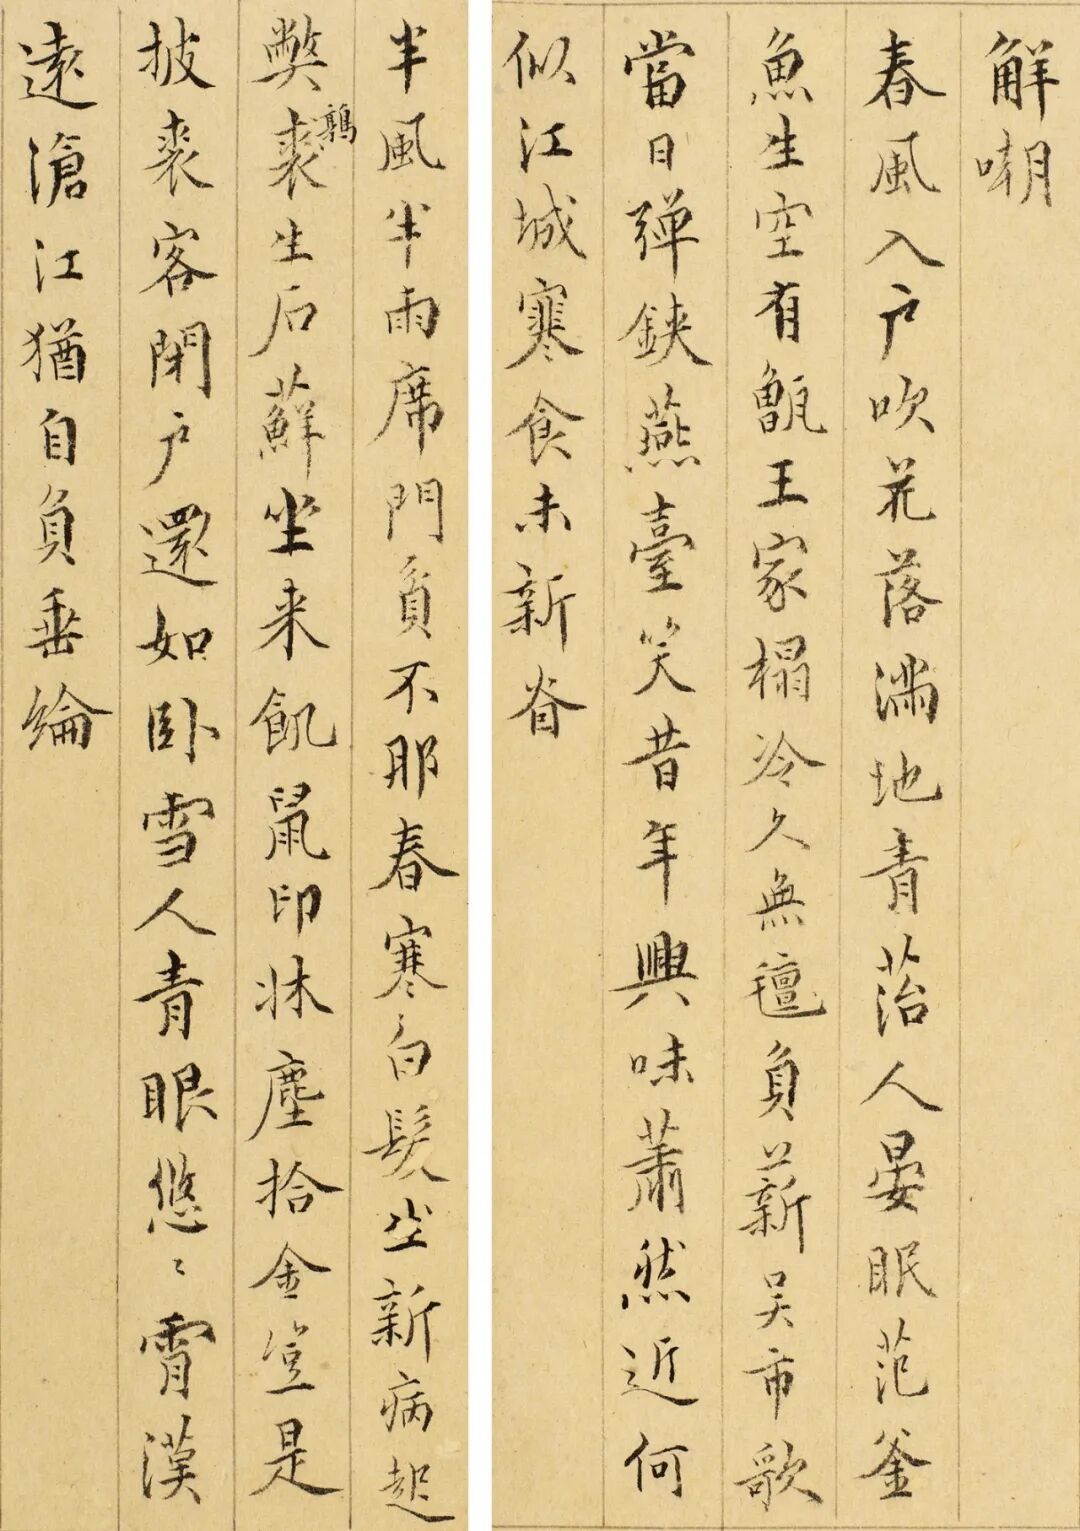 解嘲
春風入戶吹花落滿地青苔人晏眠范釜
魚生空有甑王家榻冷久無氊負薪吴市歌
當日彈鋏燕臺笑昔年興味蕭然近何
似江城寒食未新眷
半風半雨席門貧不那春寒白髮坐新病起
獘裘鶉生后蘚坐来飢鼠印牀塵拾金豈是
披裘客閉户還如卧雪人青眼悠〻霄漢
遠滄江猶自負垂綸